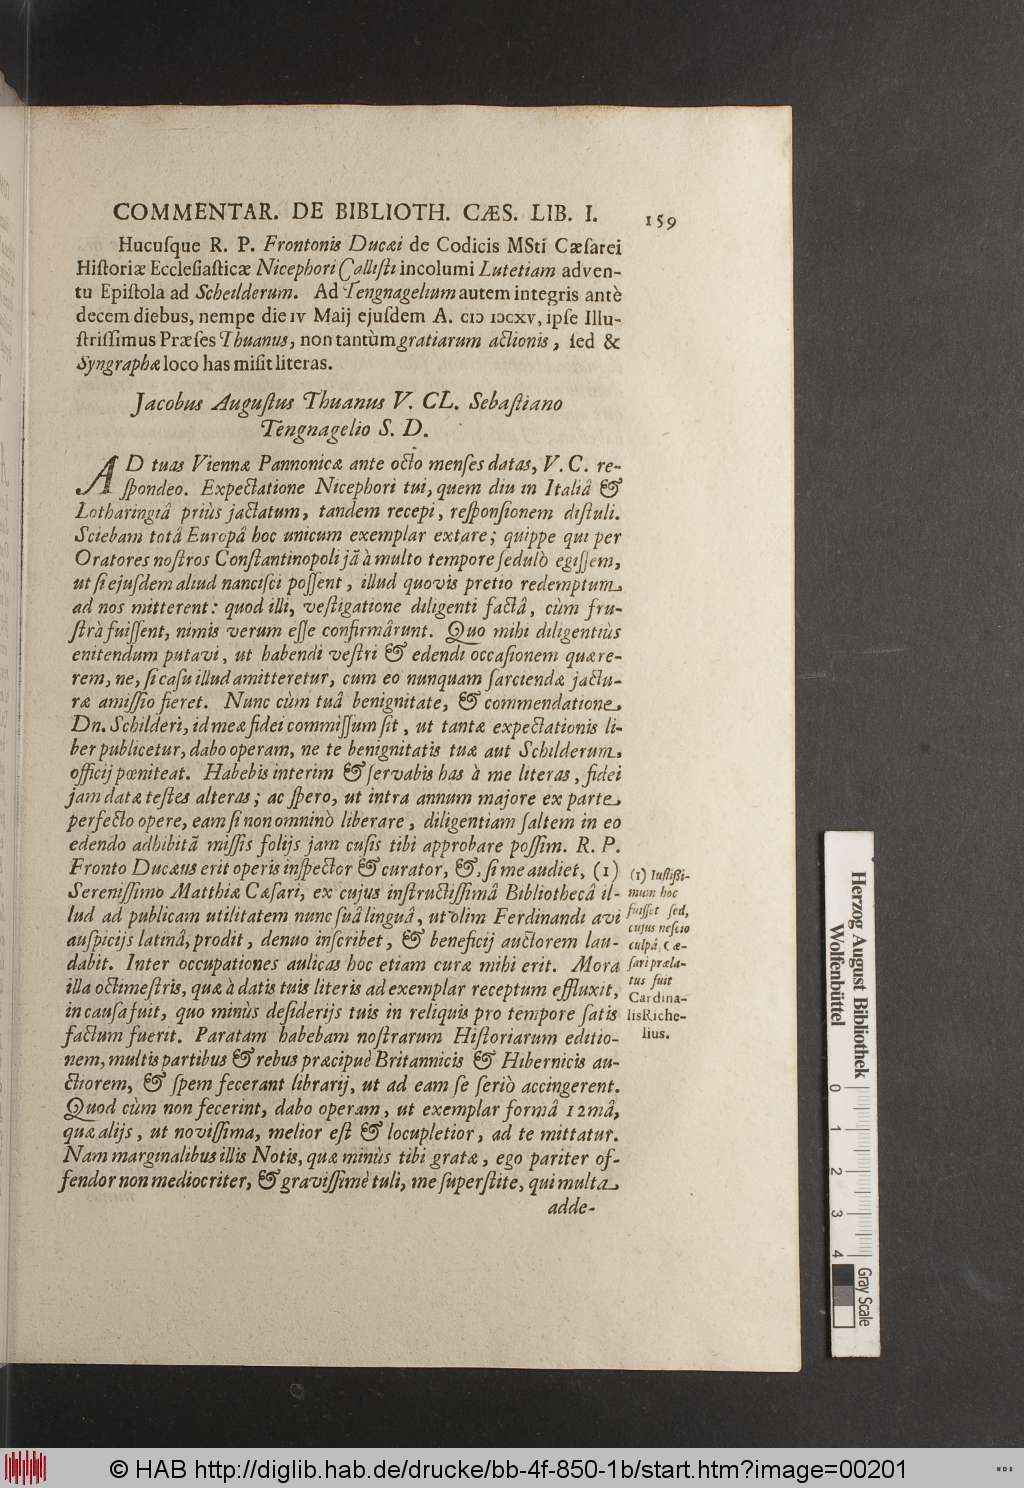 COMMENTAR. DE BIBLIOTH. CÆS. LIB. I. 159
Hucuſque R. P. Frontonis Ducæi de Codicis MSti Cæſarei
Hiſtoriæ Eccleſiaſticæ Nicephori Calliſti incolumi Lutetiam adven-
tu Epiſtola ad Scheilderum. Ad Tengnagelium autem integris antè
decem diebus, nempe die IV Maij ejuſdem A. CIↃ IↃCXV, ipſe Illu-
ſtriſſimus Præſes Thuanus, non tantùm gratiarum actionis, ſed &
Syngraphæ loco has miſit literas.
Jacobus Auguſtus Thuanus V. CL. Sebaſtiano
Tengnagelio S. D.
AD tuas Viennæ Pannonicæ ante octo menſes datas, V. C. re-
ſpondeo. Expectatione Nicephori tui, quem diu in Italiâ &
Lotharingiâ priùs jactatum, tandem recepi, reſponſionem diſtuli.
Sciebam totâ Europâ hoc unicum exemplar extare; quippe qui per
Oratores noſtros Conſtantinopoli jã à multo tempore ſedulò egiſſem,
ut ſi ejuſdem aliud nanciſci poſſent, illud quovis pretio redemptum
ad nos mitterent: quod illi, veſtigatione diligenti factâ, cùm fru-
ſtrà fuiſſent, nimis verum eſſe confirmârunt. Quo mihi diligentiùs
enitendum putavi, ut habendi veſtri & edendi occaſionem quære-
rem, ne, ſi caſu illud amitteretur, cum eo nunquam ſarciendæ jactu-
ræ amiſſio fieret. Nunc cùm tuâ benignitate, & commendatione
Dn. Schilderi, id meæ fidei commiſſum ſit, ut tantæ expectationis li-
ber publicetur, dabo operam, ne te benignitatis tuæ aut Schilderum
officij pœniteat. Habebis interim & ſervabis has à me literas, fidei
jam datæ teſtes alteras; ac ſpero, ut intra annum majore ex parte
perfecto opere, eam ſi non omninò liberare, diligentiam ſaltem in eo
edendo adhibitã miſſis folijs jam cuſis tibi approbare poſſim. R. P.
Fronto Ducæus erit operis inſpector & curator, &, ſi me audiet, (1)
Sereniſſimo Matthiæ Cæſari, ex cujus inſtructiſſimâ Bibliothecâ il-
lud ad publicam utilitatem nunc ſuâ linguâ, ut olim Ferdinandi avi
auſpicijs latinâ, prodit, denuo inſcribet, & beneficij auctorem lau-
dabit. Inter occupationes aulicas hoc etiam curæ mihi erit. Mora
illa octimeſtris, quæ à datis tuis literis ad exemplar receptum effluxit,
in cauſa fuit, quo minùs deſiderijs tuis in reliquis pro tempore ſatis
factum fuerit. Paratam habebam noſtrarum Hiſtoriarum editio-
nem, multis partibus & rebus præcipuè Britannicis & Hibernicis au-
ctiorem, & ſpem fecerant librarij, ut ad eam ſe ſeriò accingerent.
Quod cùm non fecerint, dabo operam, ut exemplar formâ 12mâ,
quæ alijs, ut noviſſima, melior eſt & locupletior, ad te mittatur.
Nam marginalibus illis Notis, quæ minùs tibi gratæ, ego pariter of-
fendor non mediocriter, & graviſſimè tuli, me ſuperſtite, qui multa
adde-
(1) Iuſtiſſi-
mum hoc
fuiſſet ſed,
cujus neſcio
culpâ, Cæ-
ſari præla-
tus fuit
Cardina-
lis Riche-
lius.
Herzog August Bibliothek
Wolfenbüttel
0 1 2 3 4
Gray Scale
© HAB http://diglib.hab.de/drucke/bb-4f-850-1b/start.htm?image=00201